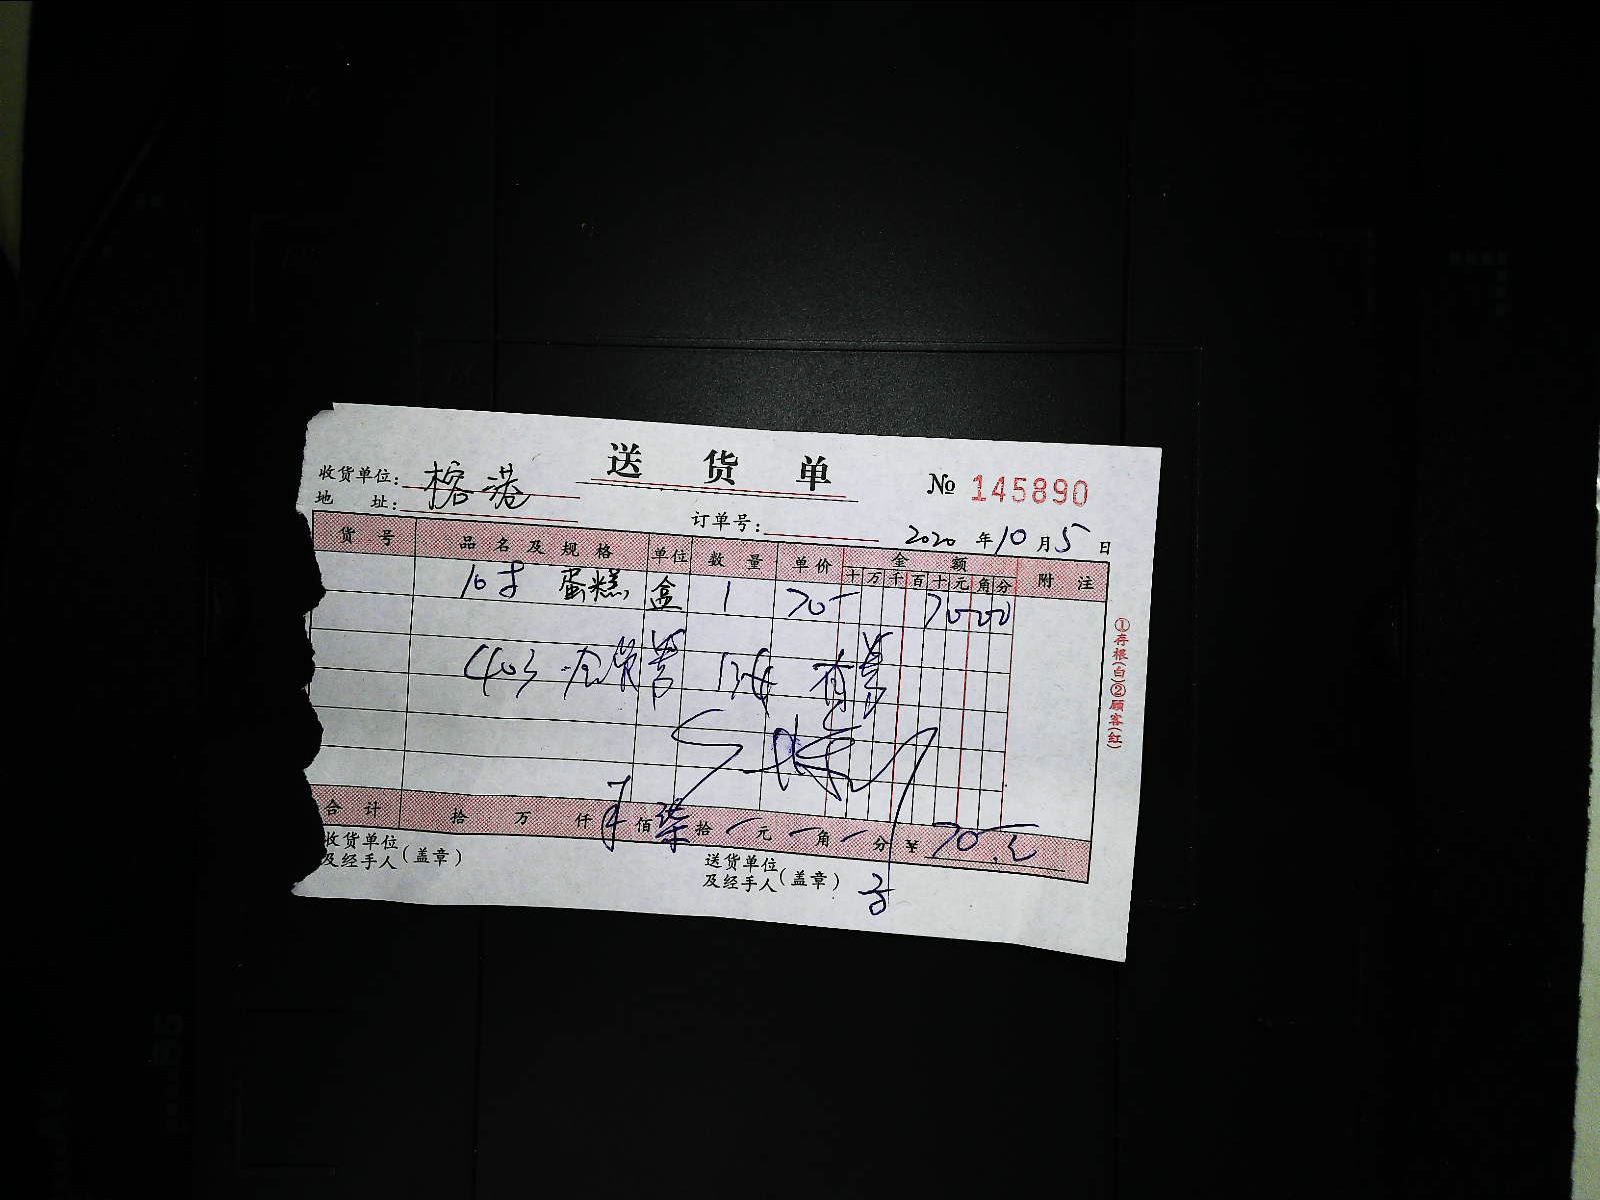 送货单
№ 145890
收货单位: 榕港
地址:
订单号:
2020 年 10 月 5 日
货号 品名及规格 单位 数量 单价 金额 附注
十 万 千 百 十 元 角 分
10寸 蛋糕 盒 1 70- 7000
403
合计 拾 万 仟 佰 柒 拾 元 角 分 ¥ 70.元
收货单位
及经手人(盖章)
送货单位
及经手人(盖章)
①存根(白)②顾客(红)